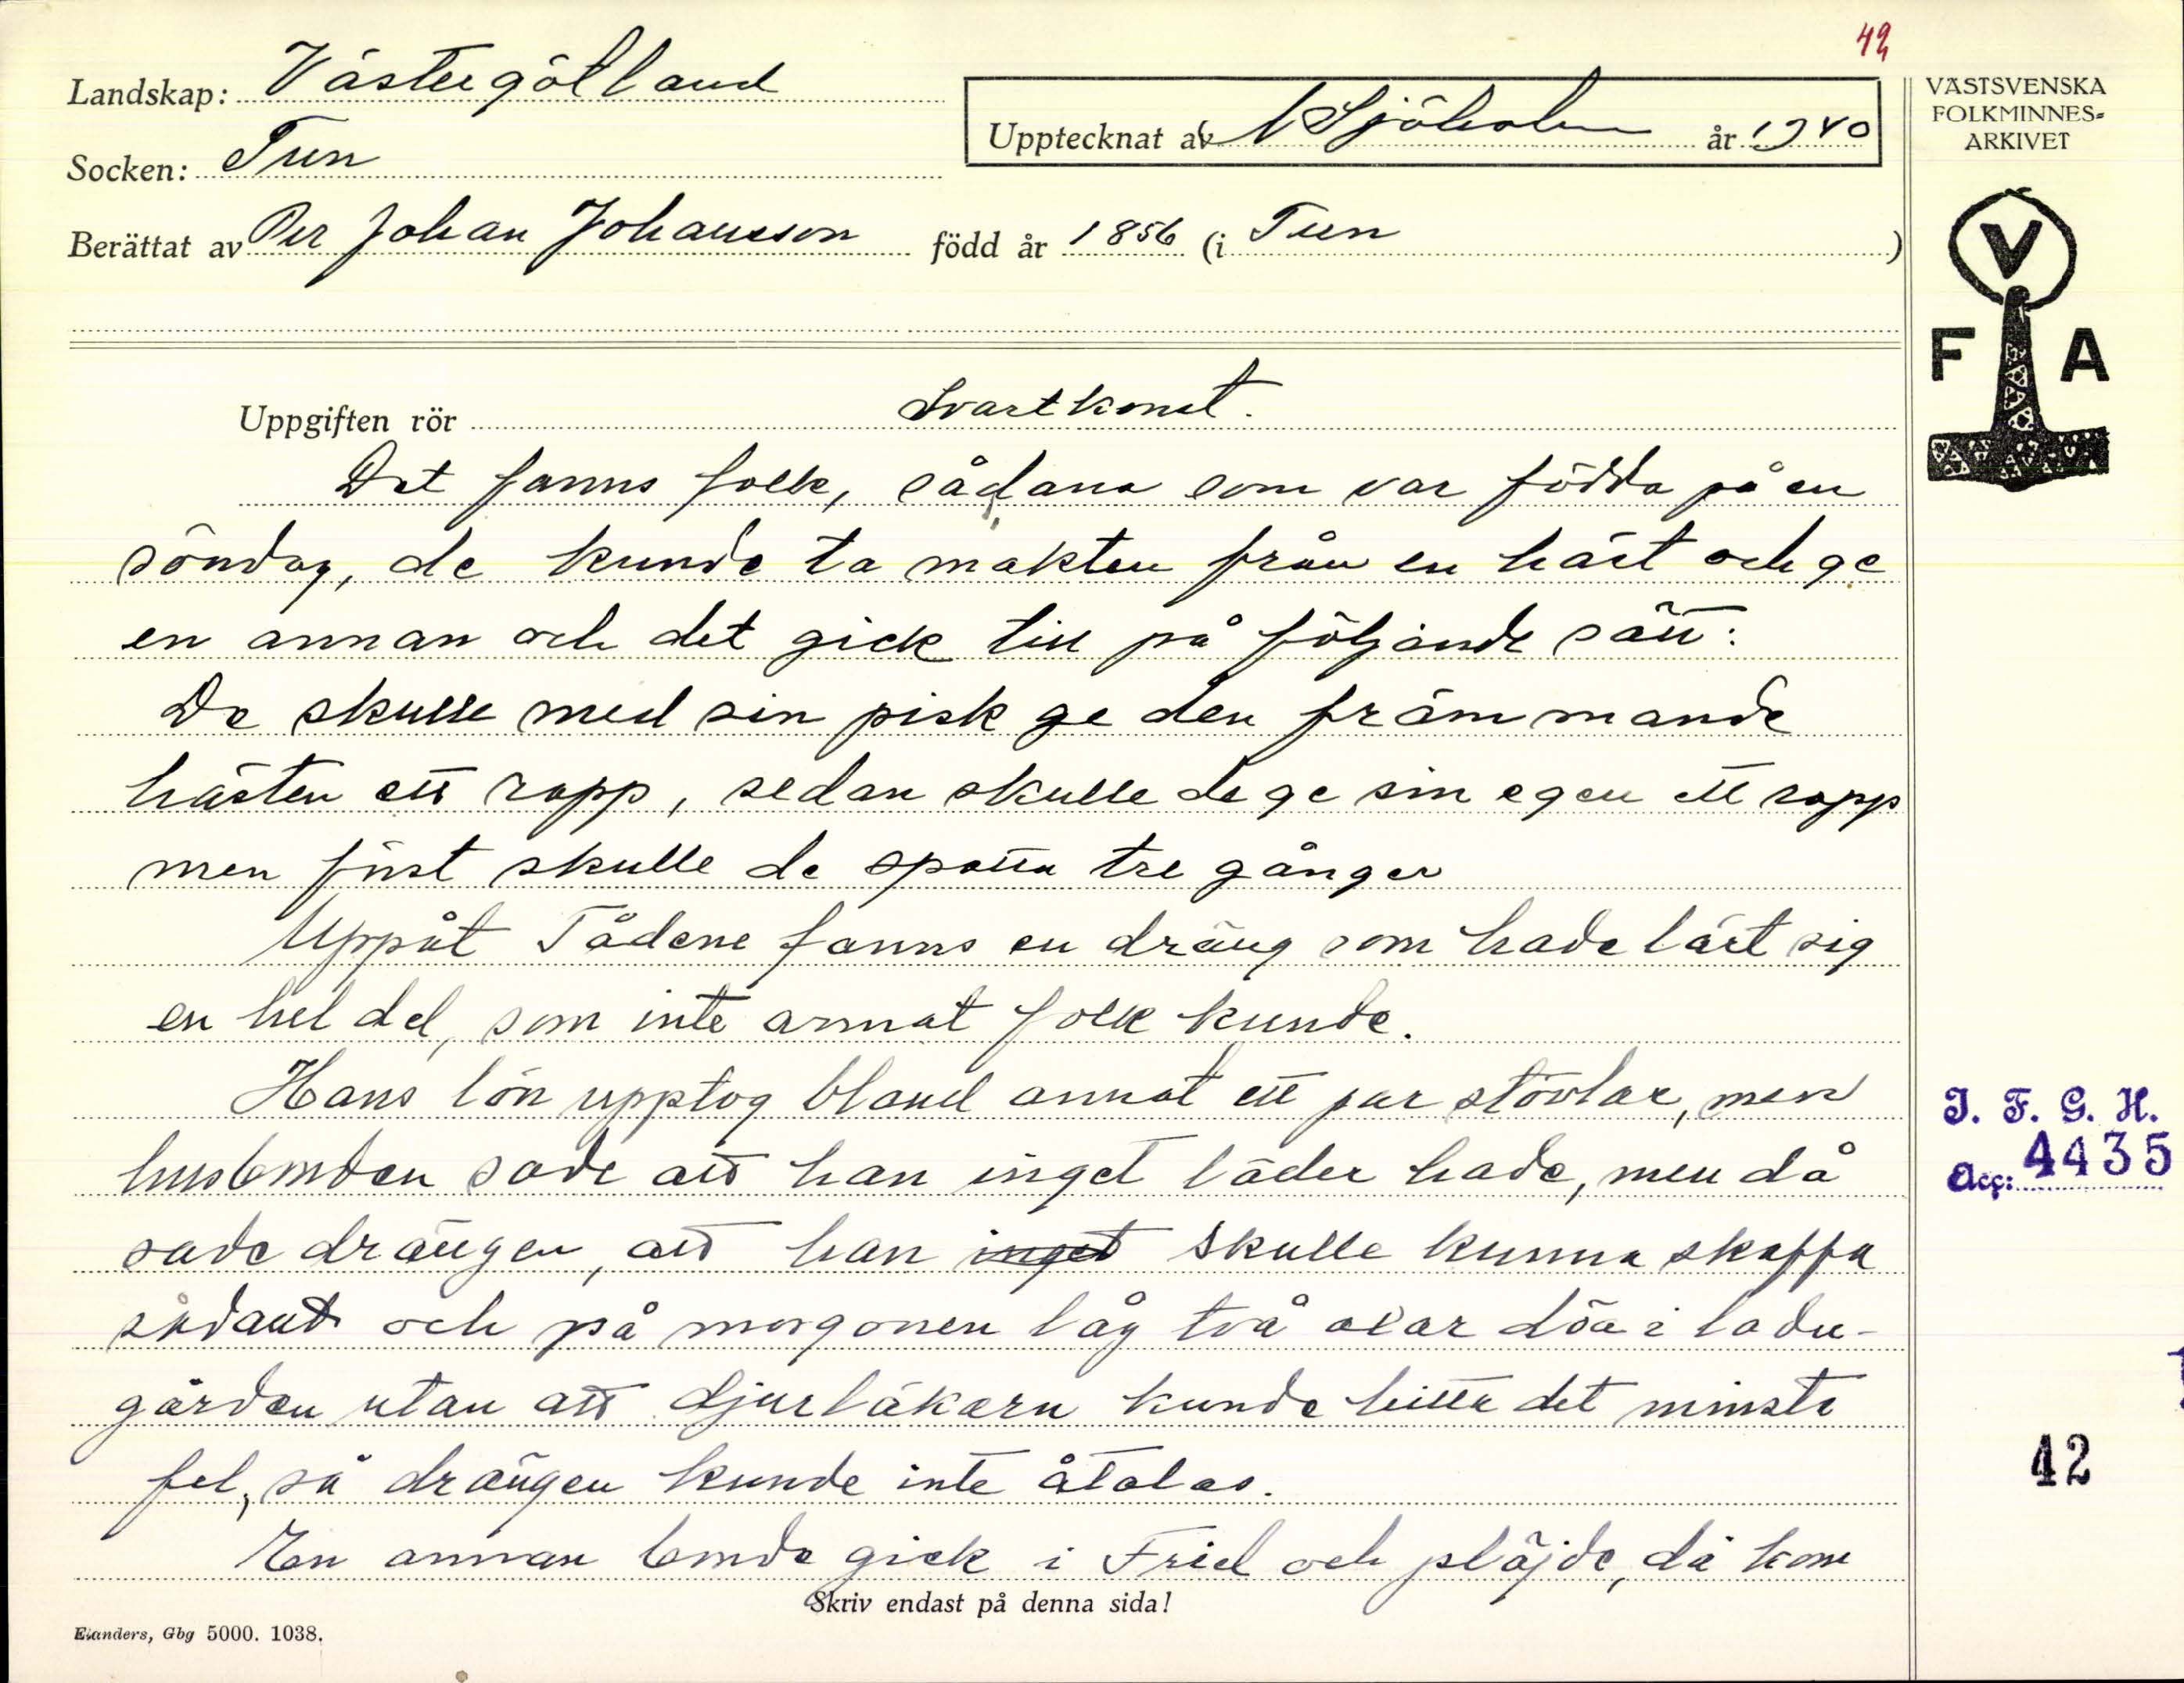 42
Landskap: Västergötland
Upptecknat av Sjöholm år 1940
VÄSTSVENSKA
FOLKMINNES-
ARKIVET
Socken: Tun
Berättat av Per Johan Johansson född år 1856 (i Tun)
V
F A
Uppgiften rör Svartkonst.
Det fanns folk, sådana som var födda på en
söndag, de kunde ta makten från en häst och ge
en annan och det gick till på följande sätt:
De skulle med sin pisk ge den främmande
hästen ett rapp, sedan skulle de ge sin egen ett rapp
men först skulle de spotta tre gånger
Uppåt Tådene fanns en dräng som hade lärt sig
en hel del, som inte annat folk kunde.
Hans lön upptog bland annat ett par stövlar, men
husbonden sade att han inget läder hade, men då
sade drängen, att han inget skulle kunna skaffa
sådant och på morgonen låg två oxar döa i ladu-
gården utan att djurläkarn kunde hitta det minsta
fel, så drängen kunde inte åtalas.
En annan bonde gick i Friel och plöjde, då kom
Skriv endast på denna sida!
Elanders, Gbg 5000. 1038.
I. F. G. H.
Acc: 4435
42